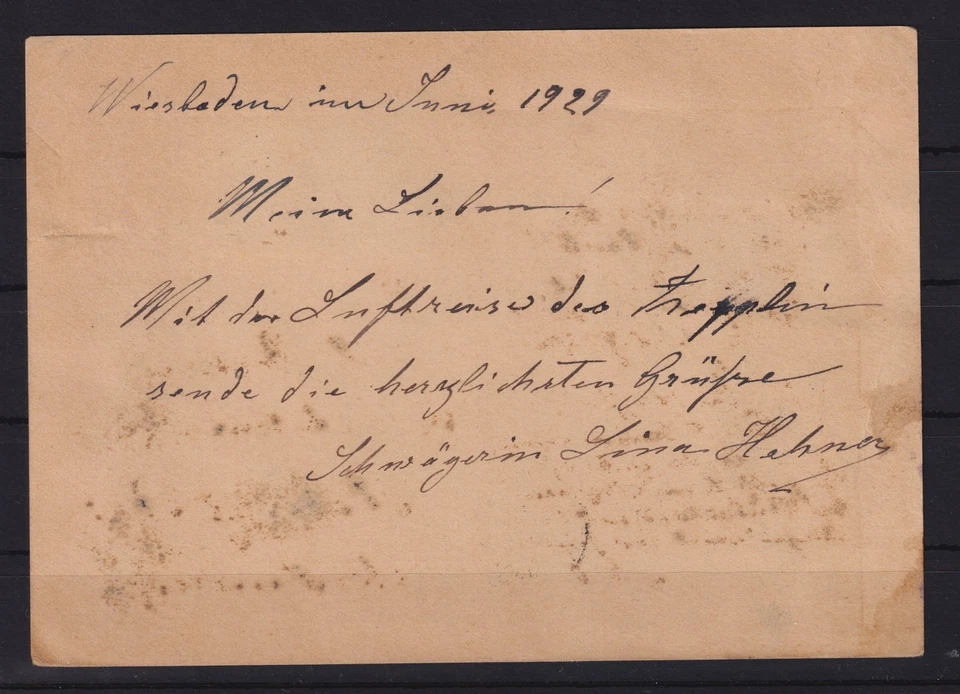 Wiesbaden im Juni 1929
Meine Lieben!
Mit der Luftreise des Zeppelin
sende die herzlichsten Grüße
Schwägerin Lina Hahner